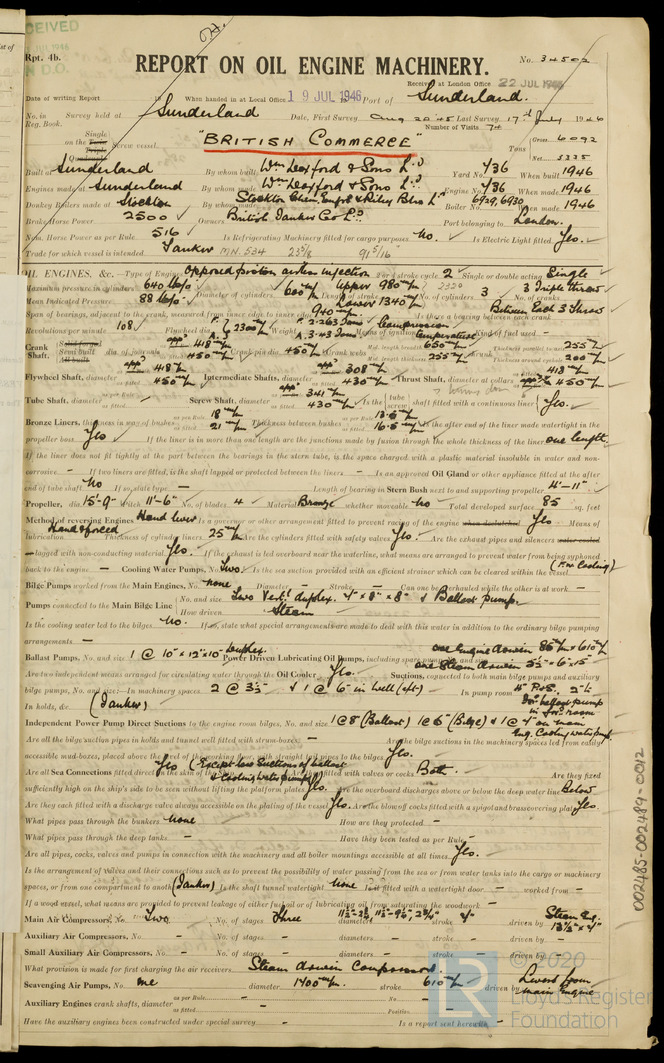 RECEIVED
JUL 1946
D.O.
Rpt. 4b.
REPORT ON OIL ENGINE MACHINERY.
No. 34502
Received at London Office 22 JUL 1946
Date of writing Report When handed in at Local Office 19 JUL 1946 Port of Sunderland.
No. in Reg. Book. Survey held at Sunderland Date, First Survey Aug 20 45 Last Survey 17th July 1946
Number of Visits 74
Single on the Screw vessel. "BRITISH COMMERCE" Tons Gross 6092
Net
Built at Sunderland By whom built Wm Doxford & Sons Ld Yard No. 736 When built 1946
Engines made at Sunderland By whom made Wm Doxford & Sons Ld Engine No. 736 When made 1946
Donkey Boilers made at Stockton By whom made Stockton Chem. Engrs & Riley Blrs Ld Boiler No. 6929,6930 When made 1946
Brake Horse Power 2500 Owners British Tanker Co Ld Port belonging to London.
Nom. Horse Power as per Rule 516 Is Refrigerating Machinery fitted for cargo purposes No. Is Electric Light fitted Yes.
Trade for which vessel is intended Tanker MN. 534 23 5/8 91 5/16
OIL ENGINES, &c.—Type of Engines Opposed piston airless injection 2 or 4 stroke cycle 2 Single or double acting Single
Maximum pressure in cylinders 640 lbs Diameter of cylinders 600 m/m Length of stroke upper 980 m/m lower 1340 m/m No. of cylinders 3 No. of cranks 3 Triple throw
Mean Indicated Pressure 88 lbs
Span of bearings, adjacent to the crank, measured from inner edge to inner edge 940 m/m Is there a bearing between each crank Between Each 3 Throw
Revolutions per minute 108 Flywheel dia. 2300 m/m Weight Means of ignition Compression Temperature Kind of fuel used —
Crank Shaft, dia. of journals as per Rule appd 418 m/m as fitted 450 m/m Crank pin dia. 450 m/m Crank webs Mid. length breadth 650 m/m Mid. length thickness 255 m/m Thickness parallel to axis 255 Thickness around eyehole 200 m/m
Flywheel Shaft, diameter as per Rule appd 418 m/m as fitted 450 m/m Intermediate Shafts, diameter as per Rule appd 308 m/m as fitted 430 m/m Thrust Shaft, diameter at collars as per Rule appd 418 m/m as fitted 450 m/m
Tube Shaft, diameter as per Rule as fitted — Screw Shaft, diameter as per Rule appd 341 m/m as fitted 430 m/m Is the tube screw shaft fitted with a continuous liner Yes.
Bronze Liners, thickness in way of bushes as per Rule 18 m/m as fitted 21 m/m Thickness between bushes as per Rule 13.5 m/m as fitted 16.5 m/m Is the after end of the liner made watertight in the
propeller boss Yes If the liner is in more than one length are the junctions made by fusion through the whole thickness of the liner one length.
If the liner does not fit tightly at the part between the bearings in the stern tube, is the space charged with a plastic material insoluble in water and non-
corrosive. — If two liners are fitted, is the shaft lapped or protected between the liners — Is an approved Oil Gland or other appliance fitted at the after
end of tube shaft No If so, state type — Length of bearing in Stern Bush next to and supporting propeller 4'-11"
Propeller, dia. 15'-9" Pitch 11'-6" No. of blades 4 Material Bronze whether moveable No Total developed surface 85 sq. feet
Method of reversing Engines Hand lever Is a governor or other arrangement fitted to prevent racing of the engine when declutched Yes Means of
lubrication Hand & forced Thickness of cylinder liners 25 m/m Are the cylinders fitted with safety valves Yes. Are the exhaust pipes and silencers water cooled
or lagged with non-conducting material Yes. If the exhaust is led overboard near the waterline, what means are arranged to prevent water from being syphoned
back to the engine — Cooling Water Pumps, No. Two. Is the sea suction provided with an efficient strainer which can be cleared within the vessel (F.W Cooling)
Bilge Pumps worked from the Main Engines, No. None Diameter — Stroke — Can one be overhauled while the other is at work —
Pumps connected to the Main Bilge Line No. and size Two Vertl duplex. 7" x 8" x 8" & Ballast pump.
How driven Steam
Is the cooling water led to the bilges No. If so, state what special arrangements are made to deal with this water in addition to the ordinary bilge pumping
arrangements —
Ballast Pumps, No. and size 1 @ 10" x 12" x 10" duplex Power Driven Lubricating Oil Pumps, including spare pump, No. and size one Engine driven 85 m/m x 610 m/m one Steam driven 5½" x 6" x 15"
Are two independent means arranged for circulating water through the Oil Cooler Yes. Suctions, connected to both main bilge pumps and auxiliary
bilge pumps, No. and size:—In machinery spaces 2 @ 3½" & 1 @ 6" in well (aft) In pump room
In holds, &c. (Tanker) ballast pump in ford room
Independent Power Pump Direct Suctions to the engine room bilges, No. and size 1@8 (Ballast) 1@6 (Bilge) & 1@ on main Eng. Cooling water pump
Are all the bilge suction pipes in holds and tunnel well fitted with strum-boxes — Are the bilge suctions in the machinery spaces led from easily
accessible mud-boxes, placed above the level of the working floor, with straight tail pipes to the bilges Yes.
Are all Sea Connections fitted direct on the skin of the ship Yes (Except less suctions of ballast & cooling water pumps) Are they fitted with valves or cocks Both. Are they fixed
sufficiently high on the ship's side to be seen without lifting the platform plates Yes. Are the overboard discharges above or below the deep water line Below
Are they each fitted with a discharge valve always accessible on the plating of the vessel Yes. Are the blow off cocks fitted with a spigot and brass covering plate Yes.
What pipes pass through the bunkers None How are they protected —
What pipes pass through the deep tanks — Have they been tested as per Rule —
Are all pipes, cocks, valves and pumps in connection with the machinery and all boiler mountings accessible at all times Yes.
Is the arrangement of valves and their connections such as to prevent the possibility of water passing from the sea or from water tanks into the cargo or machinery
spaces, or from one compartment to another (Tanker) Is the shaft tunnel watertight None Is it fitted with a watertight door — worked from —
If a wood vessel, what means are provided to prevent leakage of either fuel oil or lubricating oil from saturating the woodwork —
Main Air Compressors, No. Two No. of stages Three diameters stroke 4" driven by Steam Eng.
Auxiliary Air Compressors, No. — No. of stages — diameters — stroke — driven by —
Small Auxiliary Air Compressors, No. — No. of stages — diameters — stroke — driven by —
What provision is made for first charging the air receivers Steam driven Compressors.
Scavenging Air Pumps, No. one diameter 1400 m/m stroke 610 m/m driven by Levers from main Engine
Auxiliary Engines crank shafts, diameter as per Rule — as fitted No. — Position —
Have the auxiliary engines been constructed under special survey — Is a report sent herewith —
002485-002489-0012
LR
© 2020
Lloyd's Register
Foundation